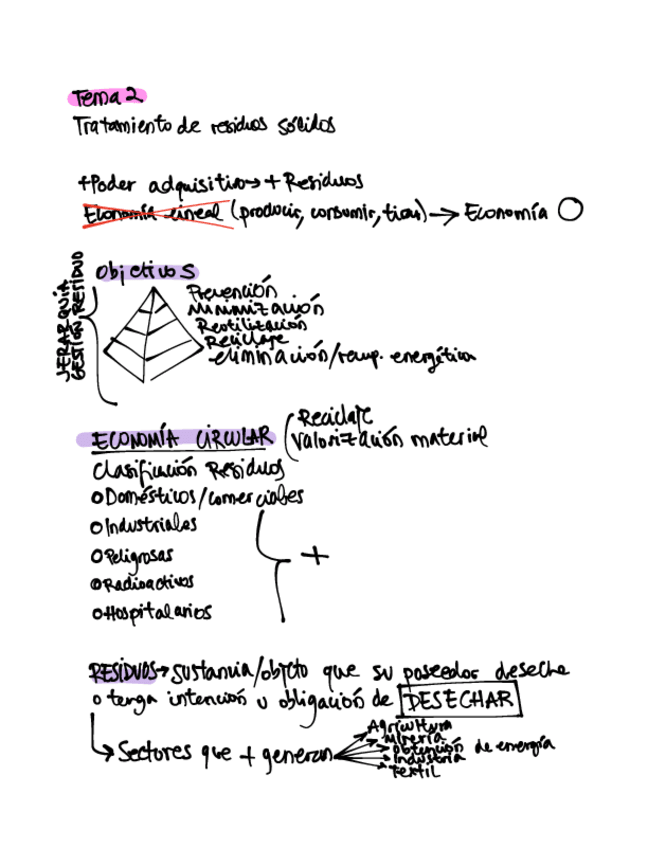 Tema 2
Tratamiento de residuos sólidos
+Poder adquisitivo→ + Residuos
Economía lineal (producir, consumir, tirar) → Economía ○
Objetivos
JERARQUÍA
GESTIÓN RESIDUO
Prevención
Minimización
Reutilización
Reciclaje
eliminación/recup. energética
ECONOMÍA CIRCULAR
Reciclaje
Valorización material
Clasificación Residuos
o Domésticos/comerciales
o Industriales
o Peligrosas
o Radioactivos
o Hospitalarios
+
RESIDUOS→ Sustancia/objeto que su poseedor deseche
o tenga intención u obligación de DESECHAR
↳ Sectores que + generan
Agricultura
Minería
obtención de energía
industria
textil